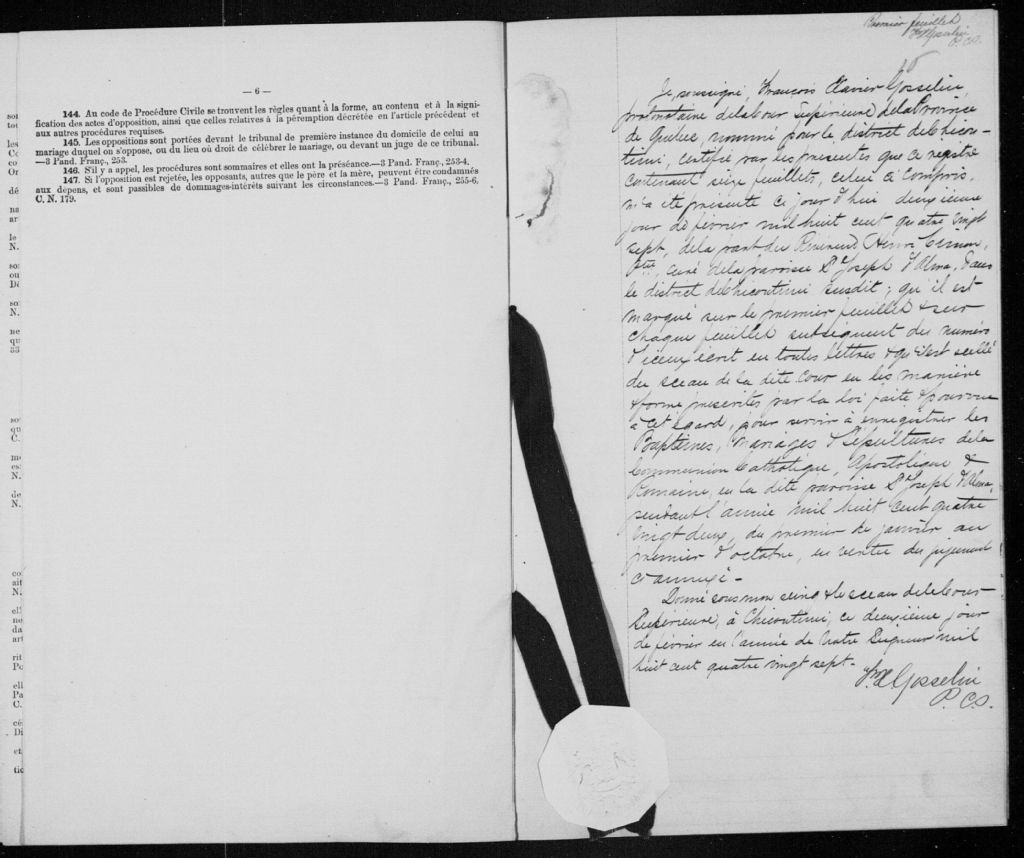 — 6 —
144. Au code de Procédure Civile se trouvent les règles quant à la forme, au contenu et à la signi-
fication des actes d'opposition, ainsi que celles relatives à la péremption décrétée en l'article précédent et
aux autres procédures requises.
145. Les oppositions sont portées devant le tribunal de première instance du domicile de celui au
mariage duquel on s'oppose, ou du lieu où droit de célébrer le mariage, ou devant un juge de ce tribunal.
—3 Pand. Franç., 253.
146. S'il y a appel, les procédures sont sommaires et elles ont la préséance.—3 Pand. Franç., 253-4.
147. Si l'opposition est rejetée, les opposants, autres que le père et la mère, peuvent être condamnés
aux dépens, et sont passibles de dommages-intérêts suivant les circonstances.—3 Pand. Franç., 255-6,
C. N. 179.
Premier feuillet
FX Gosselin
P. C. S.
Je, soussigné, François Xavier Gosselin,
protonotaire de la Cour Supérieure de la Province
de Québec nommé pour le district de Chicou-
timi, certifie par les présentes que ce registre
contenant seize feuillets, celui ci compris,
m'a été présenté ce jour d'hui deuxième
jour de février mil huit cent quatre vingt
sept, de la part du Révérend Henri Cimon,
Ptre, curé de la paroisse St Joseph d'Alma, dans
le district de Chicoutimi susdit; qu'il est
marqué sur le premier feuillet & sur
chaque feuillet subséquent du numéro
d'iceux écrit en toutes lettres & qu'il est scellé
du sceau de la dite Cour en les manière
& forme prescrites par la loi faite & pourvue
à cet égard, pour servir à enregistrer les
Baptêmes, Mariages & Sépultures de la
Communion Catholique, Apostolique &
Romaine, en la dite paroisse St Joseph d'Alma,
pendant l'année mil huit cent quatre
vingt deux, du premier de janvier au
premier d'octobre, en vertu du jugement
ci annexé -
Donné sous mon seing & le sceau de la Cour
Supérieure, à Chicoutimi, ce deuxième jour
de février en l'année de Notre Seigneur mil
huit cent quatre vingt sept. -
FX Gosselin
P. C. S.